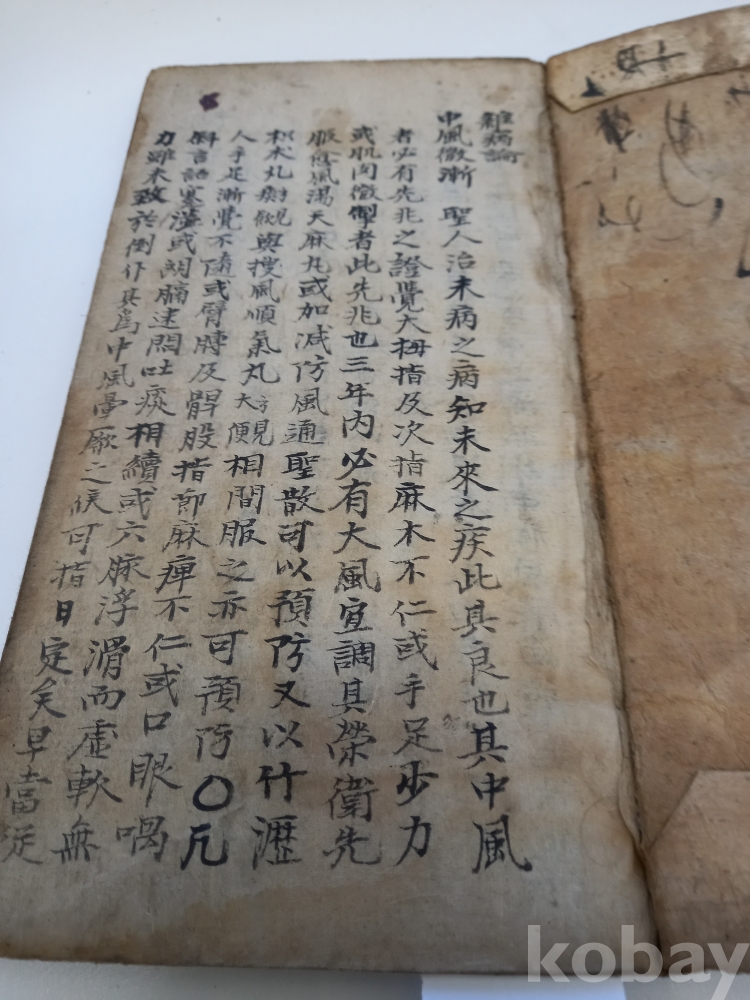 雜病論
中風微漸 聖人治未病之病知未來之疾此其良也其中風
者必有先兆之證覺大拇指及次指麻木不仁或手足少力
或肌肉微掣者此先兆也三年內必有大風宜調其榮衛先
服愈風湯天麻丸或加減防風通聖散可以預防又以竹瀝
枳朮丸與搜風順氣丸方見大便相間服之亦可預防〇凡
人手足漸覺不隨或臂膊及髀股指節麻痺不仁或口眼喎
斜言語蹇澁或胸膈迷悶吐痰相續或六脉浮滑而虛軟無
力雖未致於倒仆其爲中風暈厥之候可指日定矣早當從
kobay